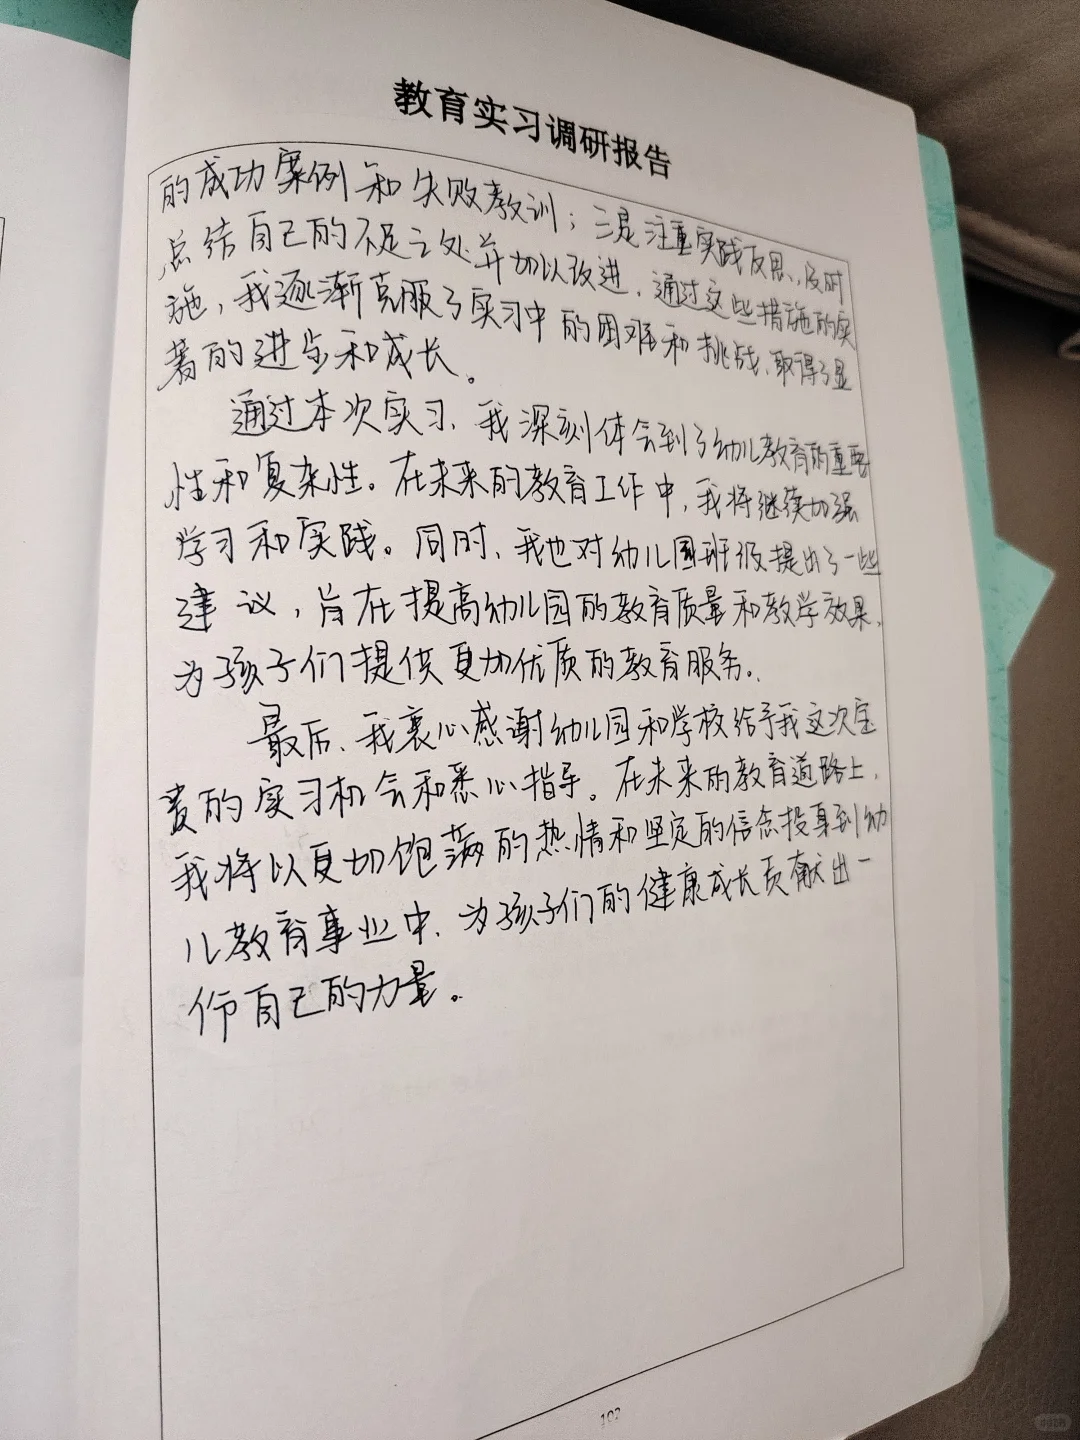 教育实习调研报告
的成功案例和失败教训；三是注重实践反思，及时
总结自己的不足之处并加以改进。通过这些措施的实
施，我逐渐克服了实习中的困难和挑战，取得了显
著的进步和成长。
通过本次实习，我深刻体会到了幼儿教育的重要
性和复杂性。在未来的教育工作中，我将继续加强
学习和实践。同时，我也对幼儿园班级提出了一些
建议，旨在提高幼儿园的教育质量和教学效果，
为孩子们提供更加优质的教育服务。
最后，我衷心感谢幼儿园和学校给予我这次宝
贵的实习机会和悉心指导。在未来的教育道路上，
我将以更加饱满的热情和坚定的信念投身到幼
儿教育事业中，为孩子们的健康成长贡献出一
份自己的力量。
102